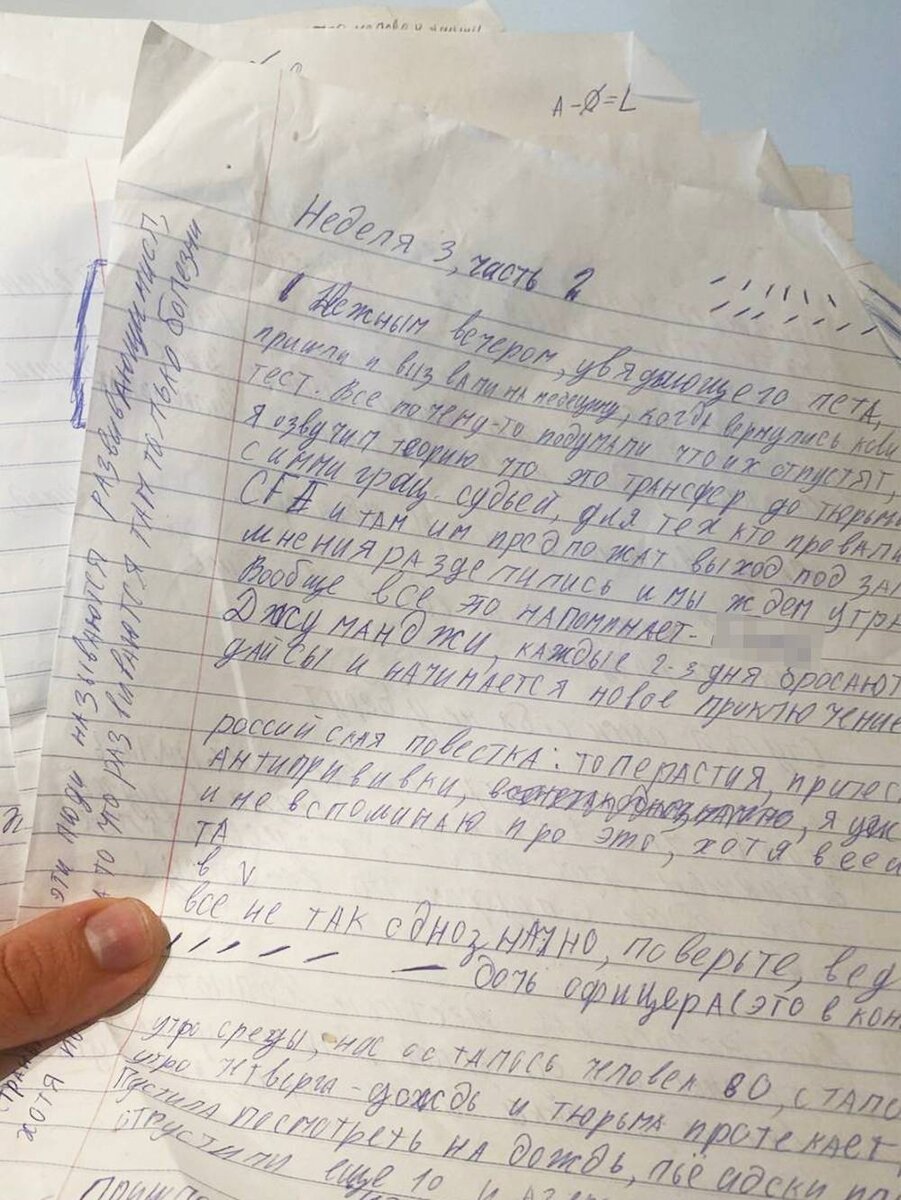 A-Ø=L
Неделя 3, часть 2
Нежным вечером, увядающего лета,
пришли и вызвали на медецину, когда вернулись
тест. Все почему-то подумали что их отпустят,
я озвучил теорию что это трансфер до тюрьмы
с имми грац. судьей, для тех кто провали
CFA и там им предложат выход под зал
мнения разделились и мы ждем утра
Вообще все это напоминает-
Джуманджи, каждые 2-3 дня бросают
дайсы и начинается новое приключение
российская повестка: толерастия, притес
Антипрививки, я уже
и не вспоминаю про это, хотя
ТА
в V
все не так однозначно, поверьте, вед
дочь офицера (это в кон
утро среды, нас осталось человек 80, стало
утро четверга - дождь и тюрьма протекает
пустила посмотреть на дождь, льё адски
отпустили еще 10 и
эти люди называются развивающимися,
а то что развиваются там только болезни
страны
хотя по